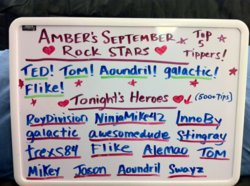 AMBER'S SEPTEMBER
ROCK STARS
Top
5
Tippers!
TED! TOM! Aoundril! galactic!
Flike!
Tonight's Heroes
(500+ Tips)
RoyDivision NinjaMike42 InnoBy
galactic awesomedude Stingray
trex584 Flike Alemao TOM
Mikey Jason Aoundril Swayz